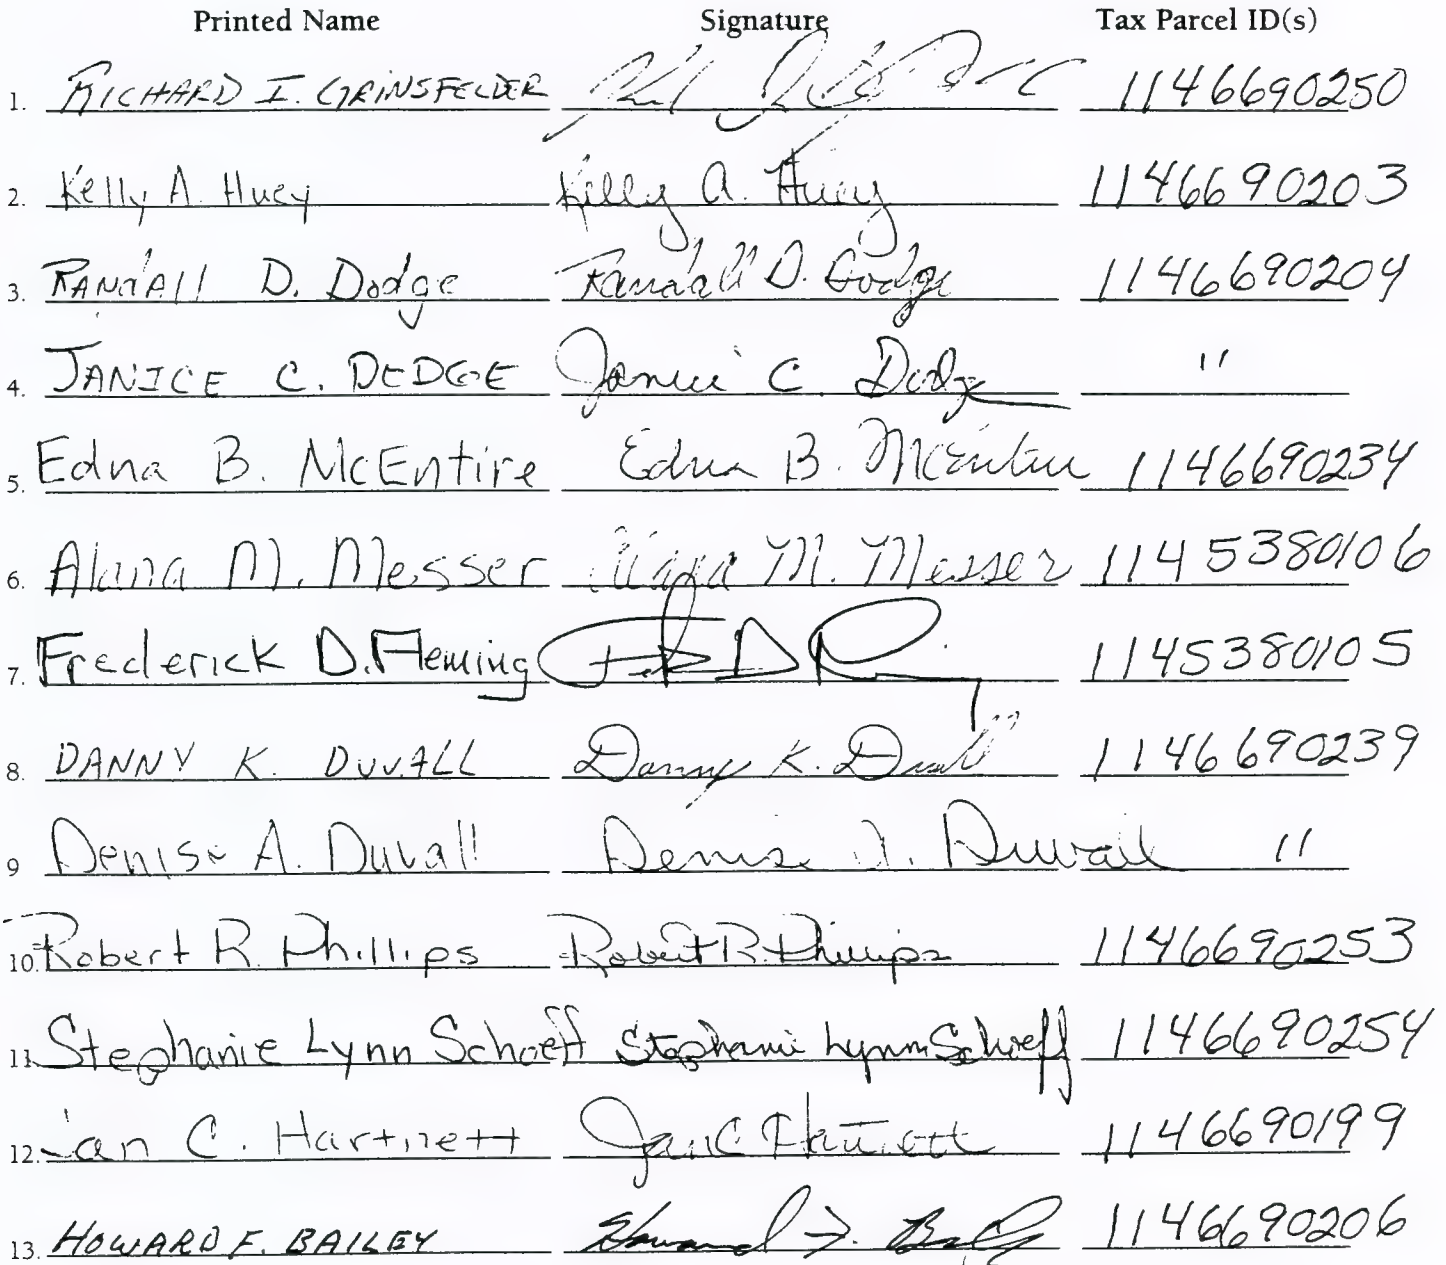 Printed Name Signature Tax Parcel ID(s)
1. RICHARD I. GRINSFELDER 1146690250
2. Kelly A. Huey Kelly A. Huey 1146690203
3. RANdAll D. Dodge Randall D. Dodge 1146690204
4. JANICE C. DEDGE Janice C. Dodge "
5. Edna B. McEntire Edna B. McEntire 1146690234
6. Alana M. Messer Alana M. Messer 1145380106
7. Frederick D. Fleming 1145380105
8. DANNY K. DUVALL Danny K. Duvall 1146690239
9 Denise A. Duvall Denise A. Duvall "
10. Robert R. Phillips Robert R. Phillips 1146690253
11. Stephanie Lynn Schoeff Stephanie Lynn Schoeff 1146690254
12. Jan C. Hartnett Jan C Hartnett 1146690199
13. HOWARD F. BAILEY Howard F. Bailey 1146690206